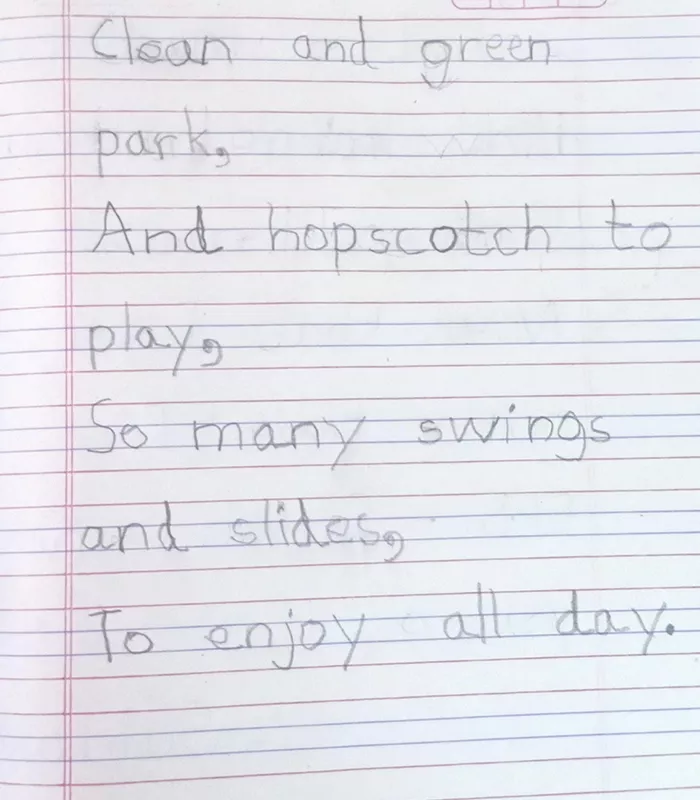 Clean and green
park,
And hopscotch to
play,
So many swings
and slides,
To enjoy all day.